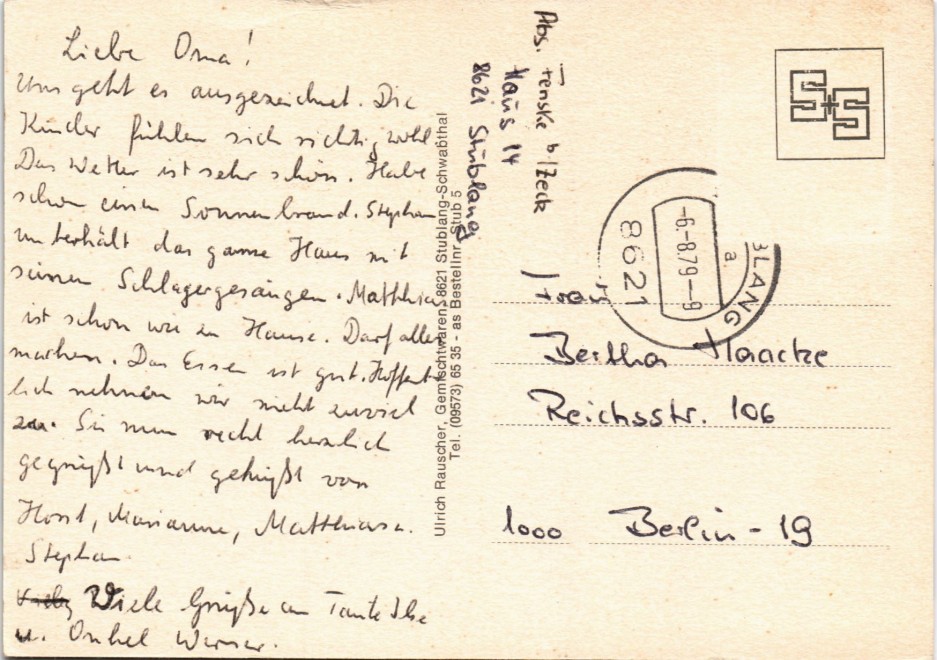 Liebe Oma!
Uns geht es ausgezeichnet. Die
Kinder fühlen sich richtig wohl
Das Wetter ist sehr schön. Habe
schon einen Sonnenbrand. Stephan
unterhält das ganze Haus mit
seinen Schlagergesängen. Matthias
ist schon wie zu Hause. Darf alles
machen. Das Essen ist gut. Hoffent-
lich nehmen wir nicht zuviel
zu. Sei nun recht herzlich
gegrüßt und geküßt von
Horst, Marianne, Matthias u.
Stephan
Viele Grüße an Tante Ilse
u. Onkel Werner.
Ulrich Rauscher, Gemischtwaren, 8621 Stublang-Schwabthal
Tel. (09573) 65 35 - as Bestellnr. Stub 5
Abs. Fenske b./Zeck
Haus 14
8621 Stublang
S+S
8621
-6.-8.79-9
a
BLANG
Frau
Bertha Haacke
Reichsstr. 106
1000 Berlin-19